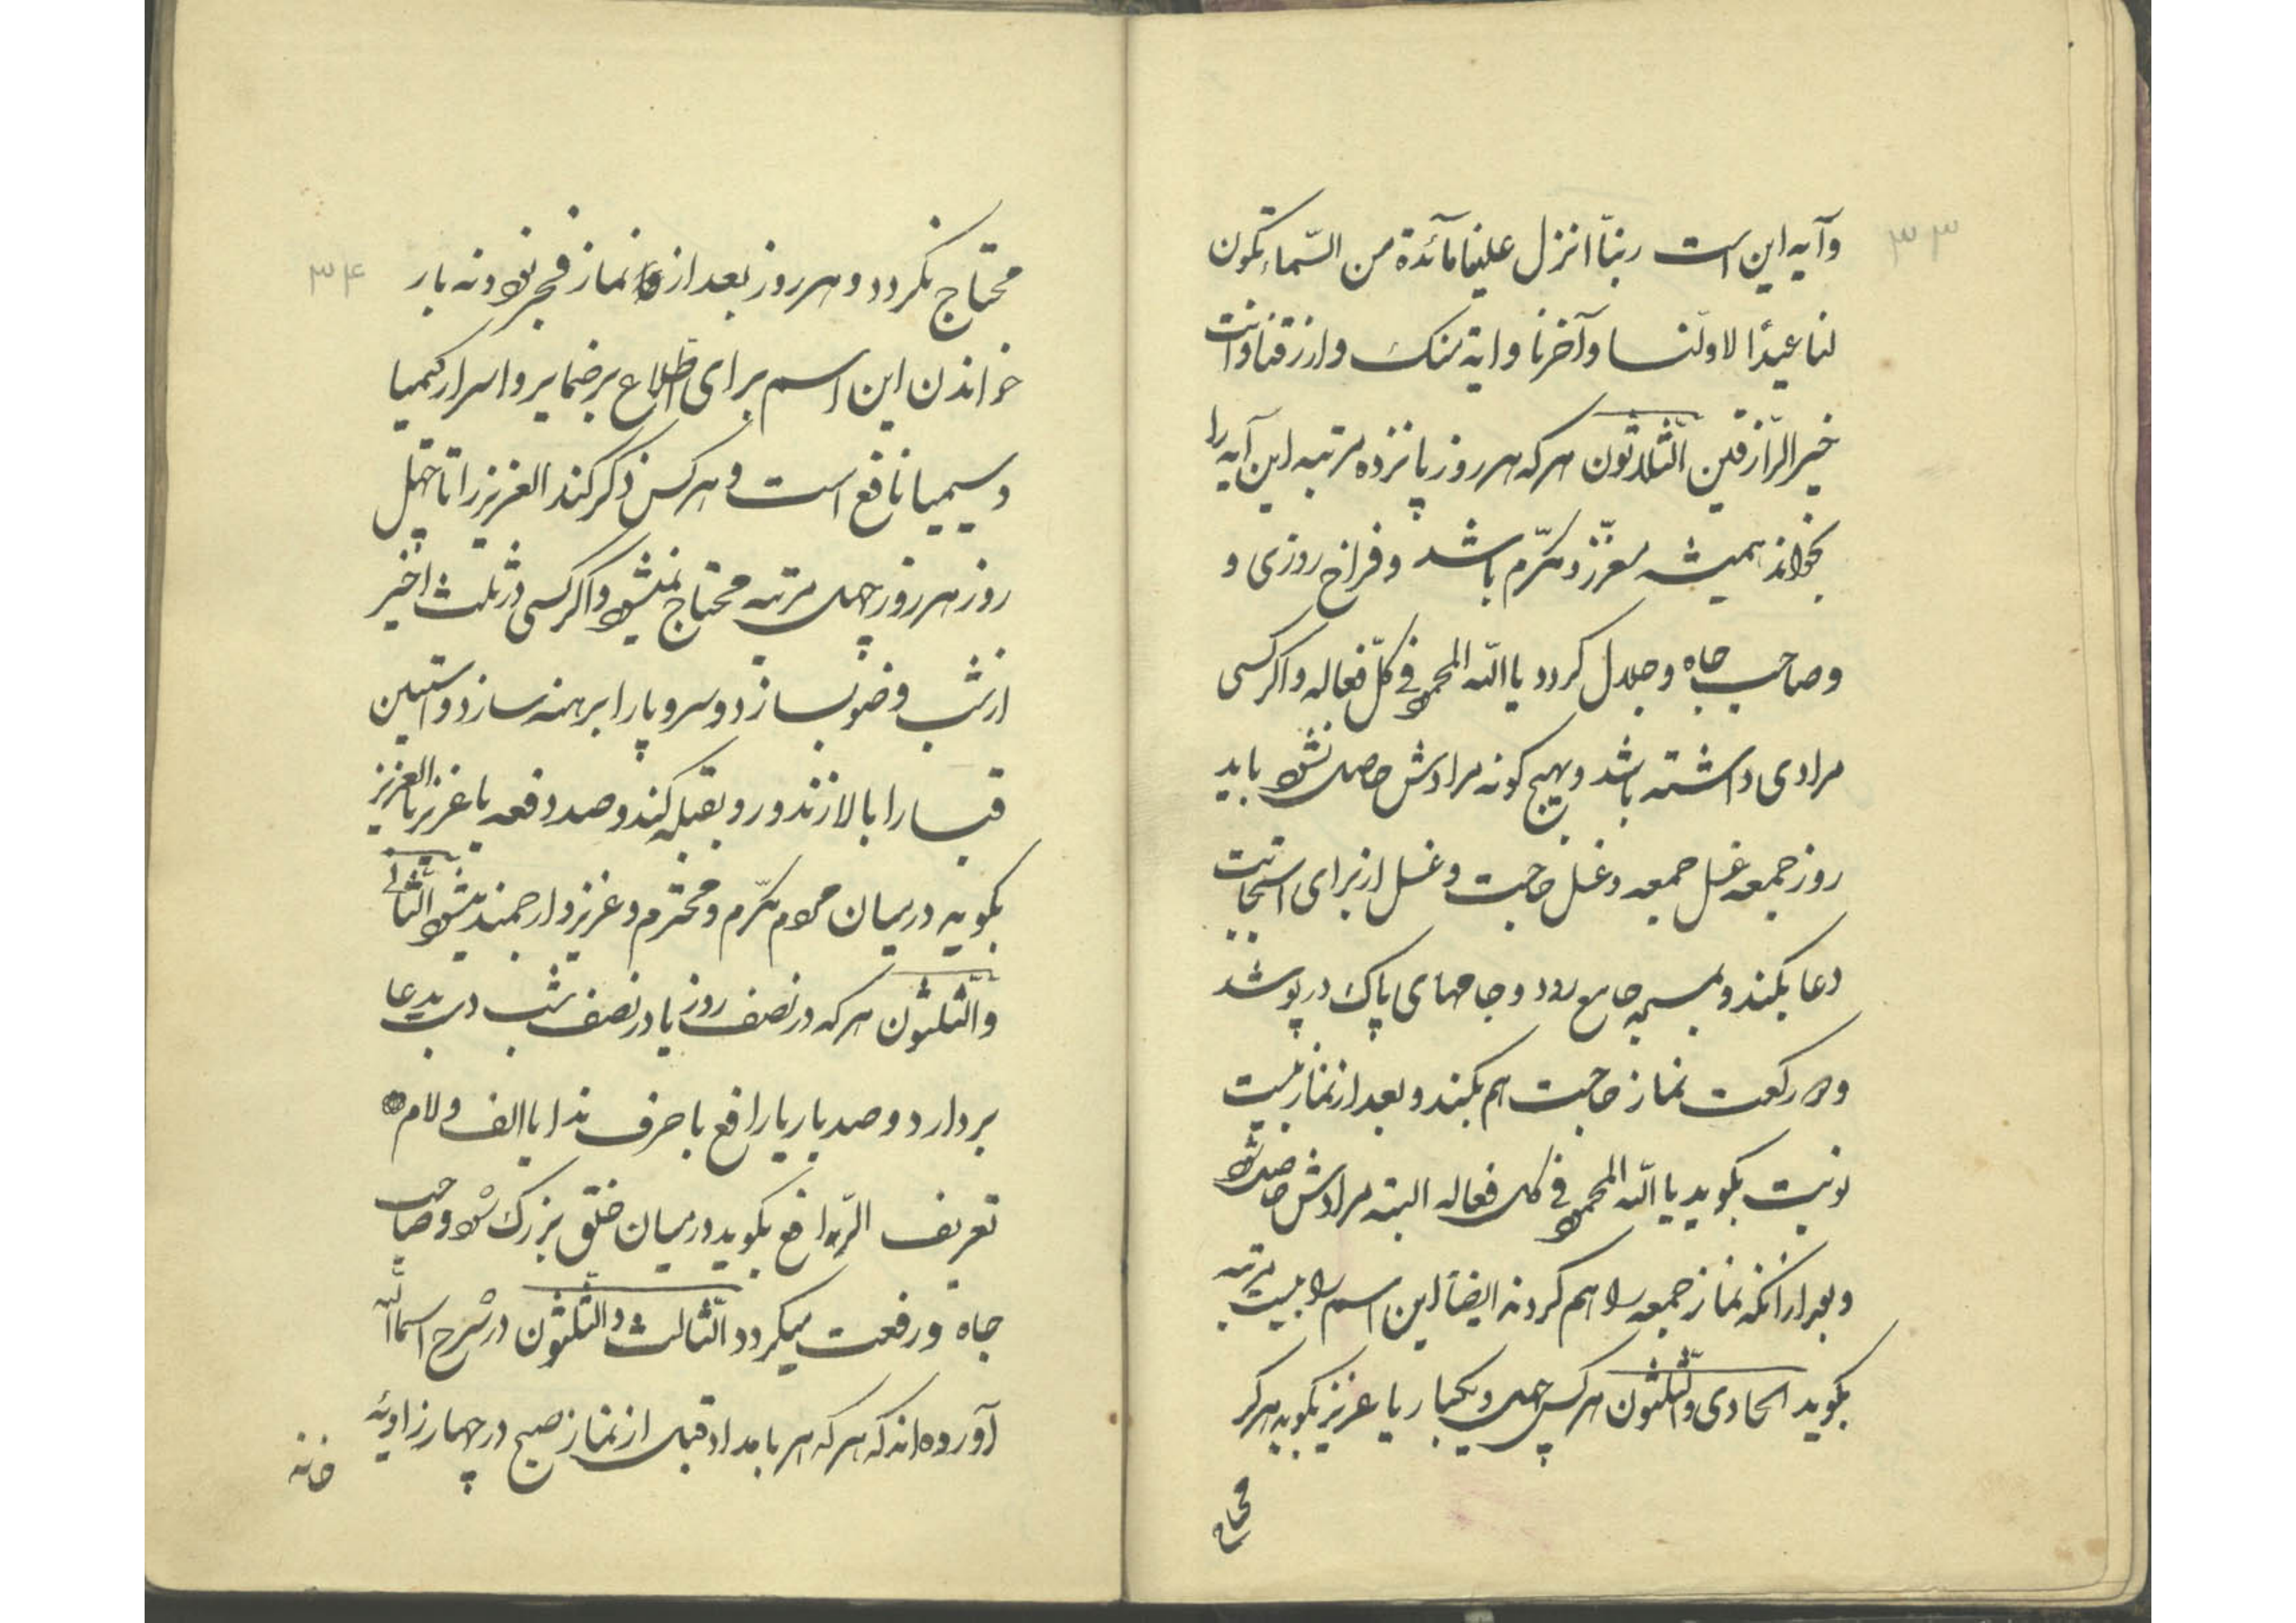 ۳۳
وآیه این است ربنّا انزل علینا مآئدة من السّماء تکون
لنا عیدًا لاوّلنا وآخرنا وایة منک وارزقنا وانت
خیر الرّازقین الثّلاثون هر که هر روز پانزده مرتبه این آیه را
بخواند همیشه معزّز و مکرّم باشد و فراخ روزی و
و صاحب جاه و جلال کردد یا اللّه المحمود فی کلّ فعاله و اکر کسی
مرادی داشته باشد و بهیچ کونه مرادش حاصل نشود باید
روز جمعه غسل جمعه و غسل حاجت و غسل از برای استجابت
دعا بکند و بمسجد جامع رود و جامهای پاک در پوشد
و دو رکعت نماز حاجت هم بکند و بعد از نماز بیست
نوبت بکوید یا اللّه المحمود فی کل فعاله البته مرادش حاصل شود
و بعد از آنکه نماز جمعه را هم کردند ایضاً این اسم را بیست مرتبه
بکوید الحادی والثّلثون هر کس چهل و یکبار یا عزیز بکوید هرکز
محتاج
۳۴
محتاج نکردد و هر روز بعد از نماز فجر نود و نه بار
خواندن این اسم برای اطّلاع بر ضمایر و اسرار کیمیا
و سیمیا نافع است و هر کس ذکر کند العزیز را تا چهل
روز هر روز چهل مرتبه محتاج نمیشود و اکر کسی در ثلث اخیر
از شب وضو بسازد و سر و پا را برهنه سازد و آستین
قبا را بالا زند و رو بقبله کند و صد دفعه یا عزیز یا العزیز
بکوید در میان مردم مکرّم و محترم و عزیز و ارجمند میشود الثّانی
والثّلثون هر که در نصف روز یا در نصف شب دست بدعا
بردارد و صد بار یا رافع با حرف ندا یا الف و لام
تعریف الرّافع بکوید در میان خلق بزرک شود و صاحب
جاه و رفعت میکردد الثّالث والثّلثون در شرح اسماء اللّه
آورده‌اند که هر که هر بامداد قبل از نماز صبح در چهار زاویهٔ
خانه